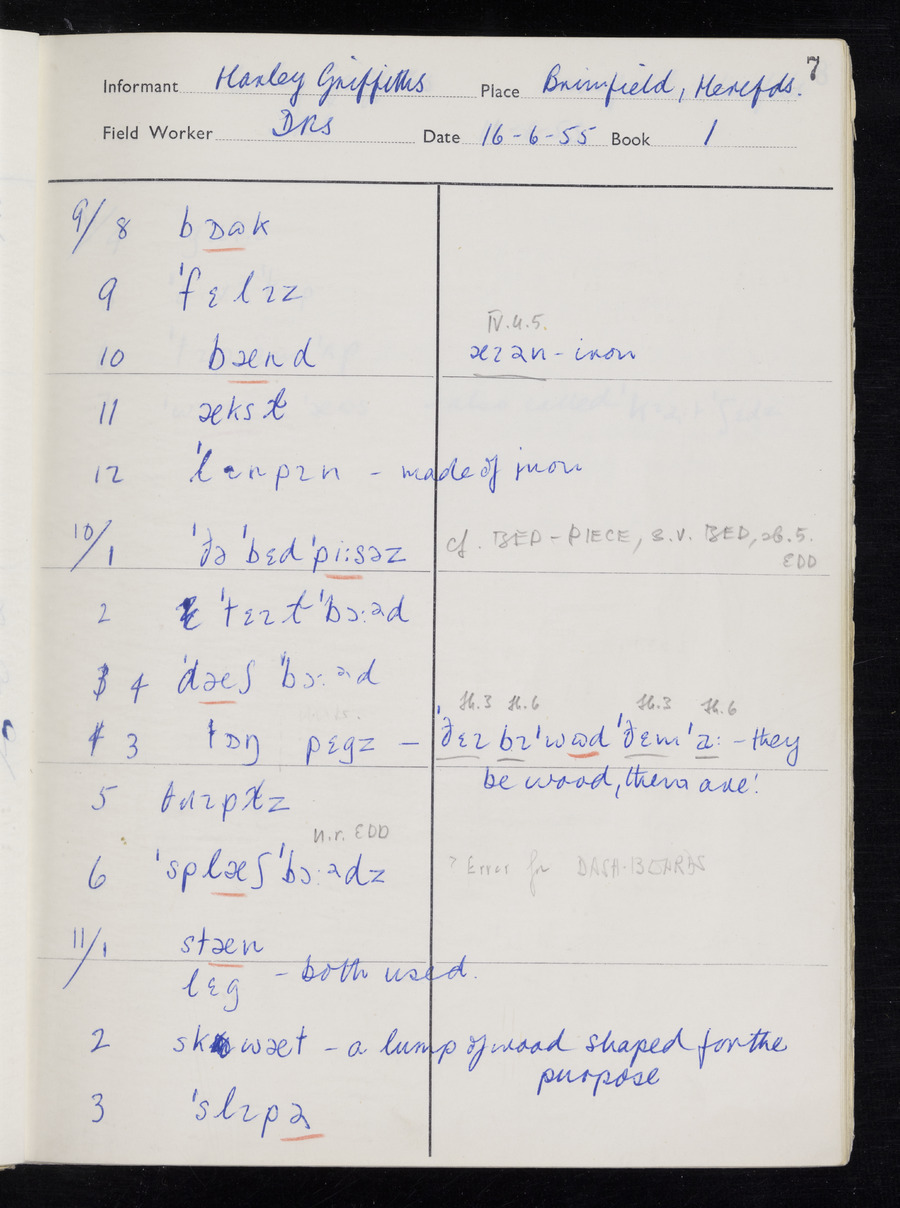 7
Informant Harley Griffiths Place Brimfield, Herefds.
Field Worker DRS Date 16-6-55 Book 1
9/8 bɒɷk
9 ˈfɛlɪz
IV.4.5.
10 bænd æɪən - iron
11 ækst
12 ˈlɪnpɪn - made of iron
10/1 ˈðə ˈbɛd ˈpiːsəz cf. BED-PIECE, s.v. BED, sb. 5.
EDD
2 ˈtɛɪt ˈbɔːəd
4 ˈdæʃ ˈbɔːəd
3 tɒŋ pɛgz - ˈðɛɪ bɪ ˈwɷd ˈðɛm ˈaː - they
be wood, them are.
5
n.r. EDD
6 ˈsplæʃ ˈbɔːədz ? Error for DASH-BOARDS
11/1 stæn
lɛg - both used.
2 skwæt - a lump of wood shaped for the
purpose
3 ˈslɪpə